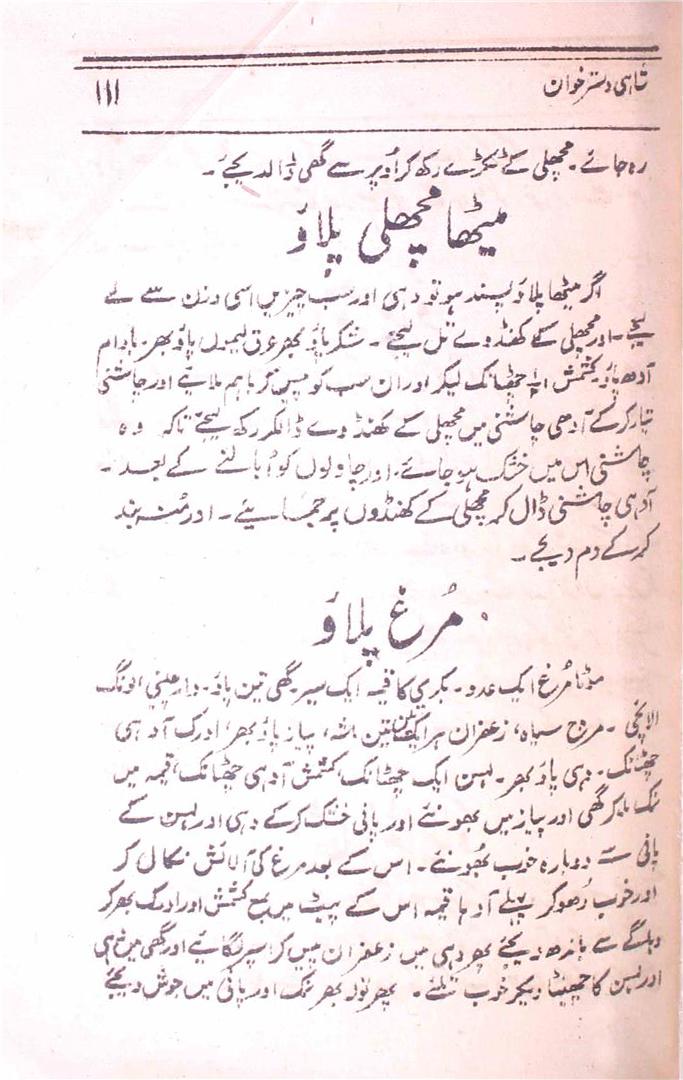 شاہی دسترخوان
۱۱۱
رہ جائے۔ مچھلی کے ٹکڑے رکھ کر اوپر سے گھی ڈالدیجئے۔
میٹھا مچھلی پلاؤ
اگر میٹھا پلاؤ پسند ہو تو دہی اور سب چیزیں اسی وزن سے لے
لیجئے۔ اور مچھلی کے کھنڈوے تل لیجئے۔ شکر پاؤ بھر عرق لیموں پاؤ بھر۔ بادام
آدھ پاؤ کشمش چھٹانک لیکر اور ان سب کو پیس کر باہم ملائیے اور چاشنی
تیار کر کے آدھی چاشنی میں مچھلی کے کھنڈوے ڈالکر رکھ لیجئے تاکہ وہ
چاشنی اس میں خشک ہو جائے، اور چاولوں کو اُبالنے کے بعد
آدہی چاشنی ڈال کر مچھلی کے کھنڈوں پر جمائیے۔ اور مُنہ بند
کر کے دم دیجے۔
مُرغ پلاؤ
موٹا مُرغ ایک عدد۔ بکری کا قیمہ ایک سیر گھی تین پاؤ۔ دارچینی لونگ
الائچی۔ مرچ سیاہ، زعفران ہر ایک تین ماشہ، پیاز پاؤ بھر، ادرک آدہی
چھٹانک۔ دہی پاؤ بھر۔ لہسن ایک چھٹانک، کشمش آدہی چھٹانک، قیمہ میں
نمک ملا کر گھی اور پیاز میں بھونئے اور پانی خشک کر کے دہی اور لہسن کے
پانی سے دوبارہ خوب بھُونئے۔ اس کے بعد مرغ کی آلائش نکال کر
اور خوب دھو کر پہلے آدہا قیمہ اس کے پیٹ میں مع کشمش اور ادرک بھر کر
دہاگے سے باندھ دیجئے پھر دہی میں زعفران پیس کر اسپر لگائیے اور گھی میں دہی
اور لہسن کا چھینٹا دیکر خوب تلئے۔ پھر تولہ بھر نمک اور پانی میں جوش دیجئے